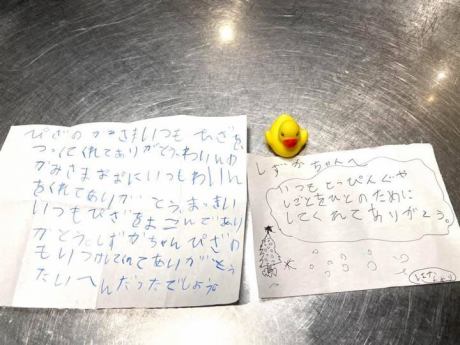 ぴざのかみさまいつも ぴざを
つくってくれてありがとう。わいんの
かみさまおおにいつもわいん
をくれてありがとう。まっまい
いつもぴざをまごんでであり
がとう。しずかちゃんぴざの
もいつがてくれてありがとう
たいへんだったでしょう。
しずかちゃんへ
いつもとっぴんぐや
しごとをひとのために
してくれてありがとう。